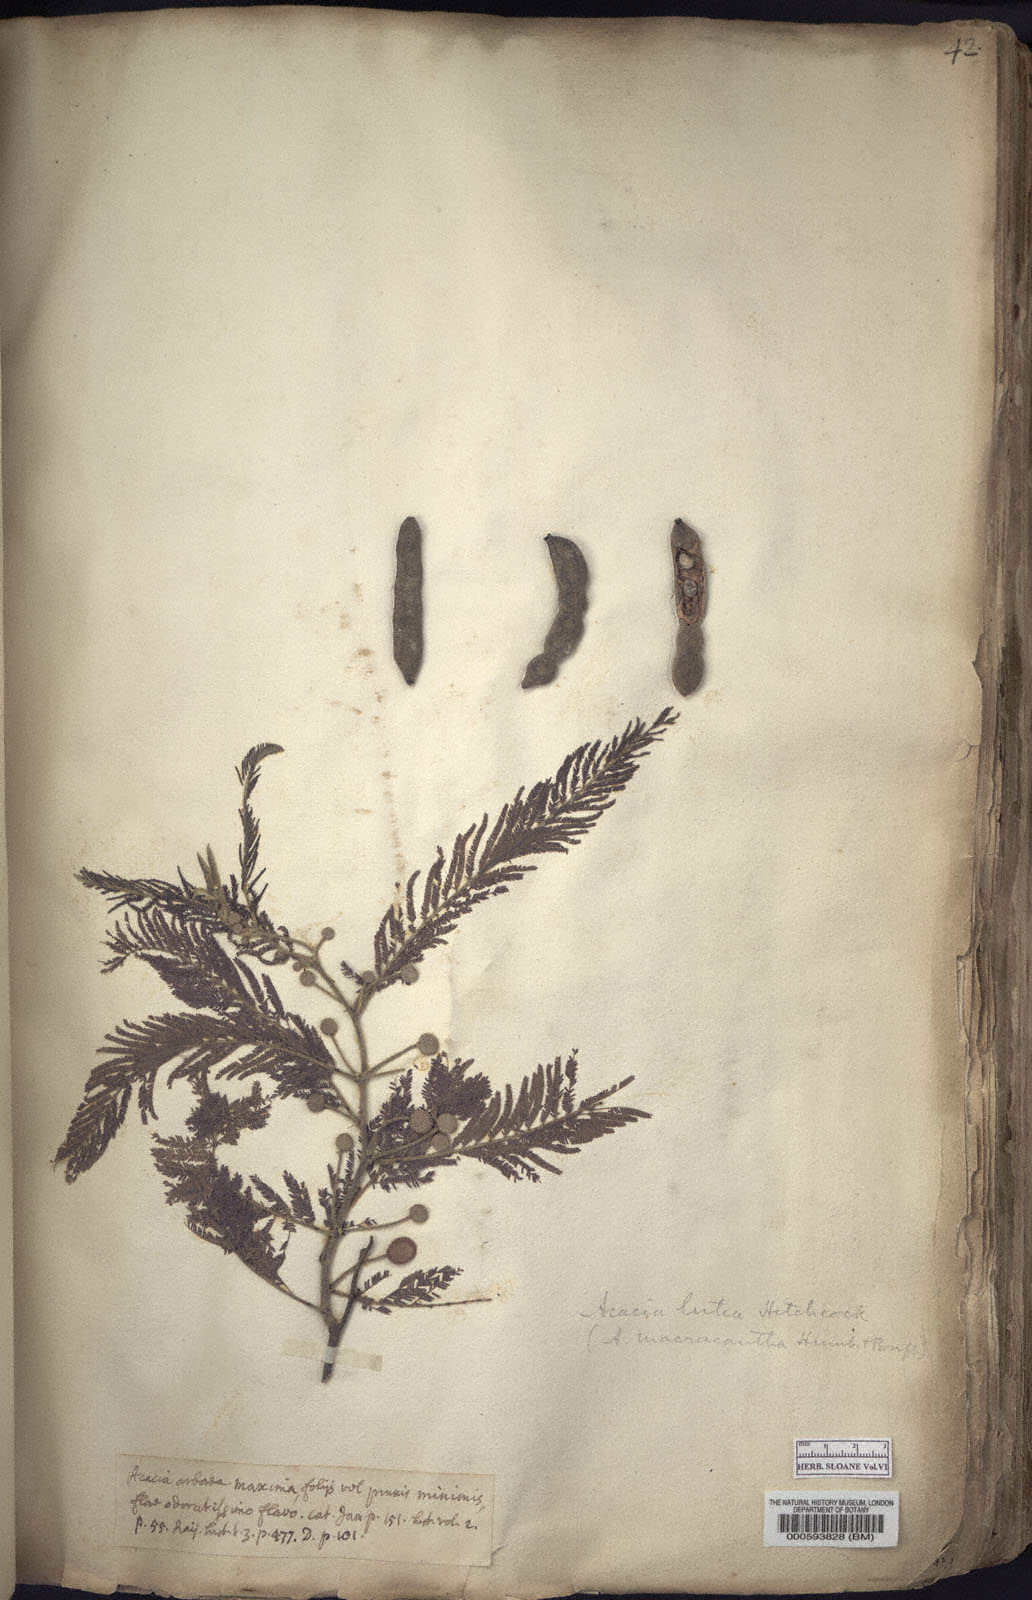 42.
Acacia lutea Hitchcock
(A. macracantha Humb. & Bonpl.)
mm 1 2 3
HERB. SLOANE Vol.VI
Acacia arborea maxima, folijs vel pinnis minimis,
flore odoratissimo flavo. cat. Jam p. 151. hist. vol. 2.
p. 55. Raij. hist. t. 3. p. 477. D. p. 101.
THE NATURAL HISTORY MUSEUM, LONDON
DEPARTMENT OF BOTANY
000593828 (BM)